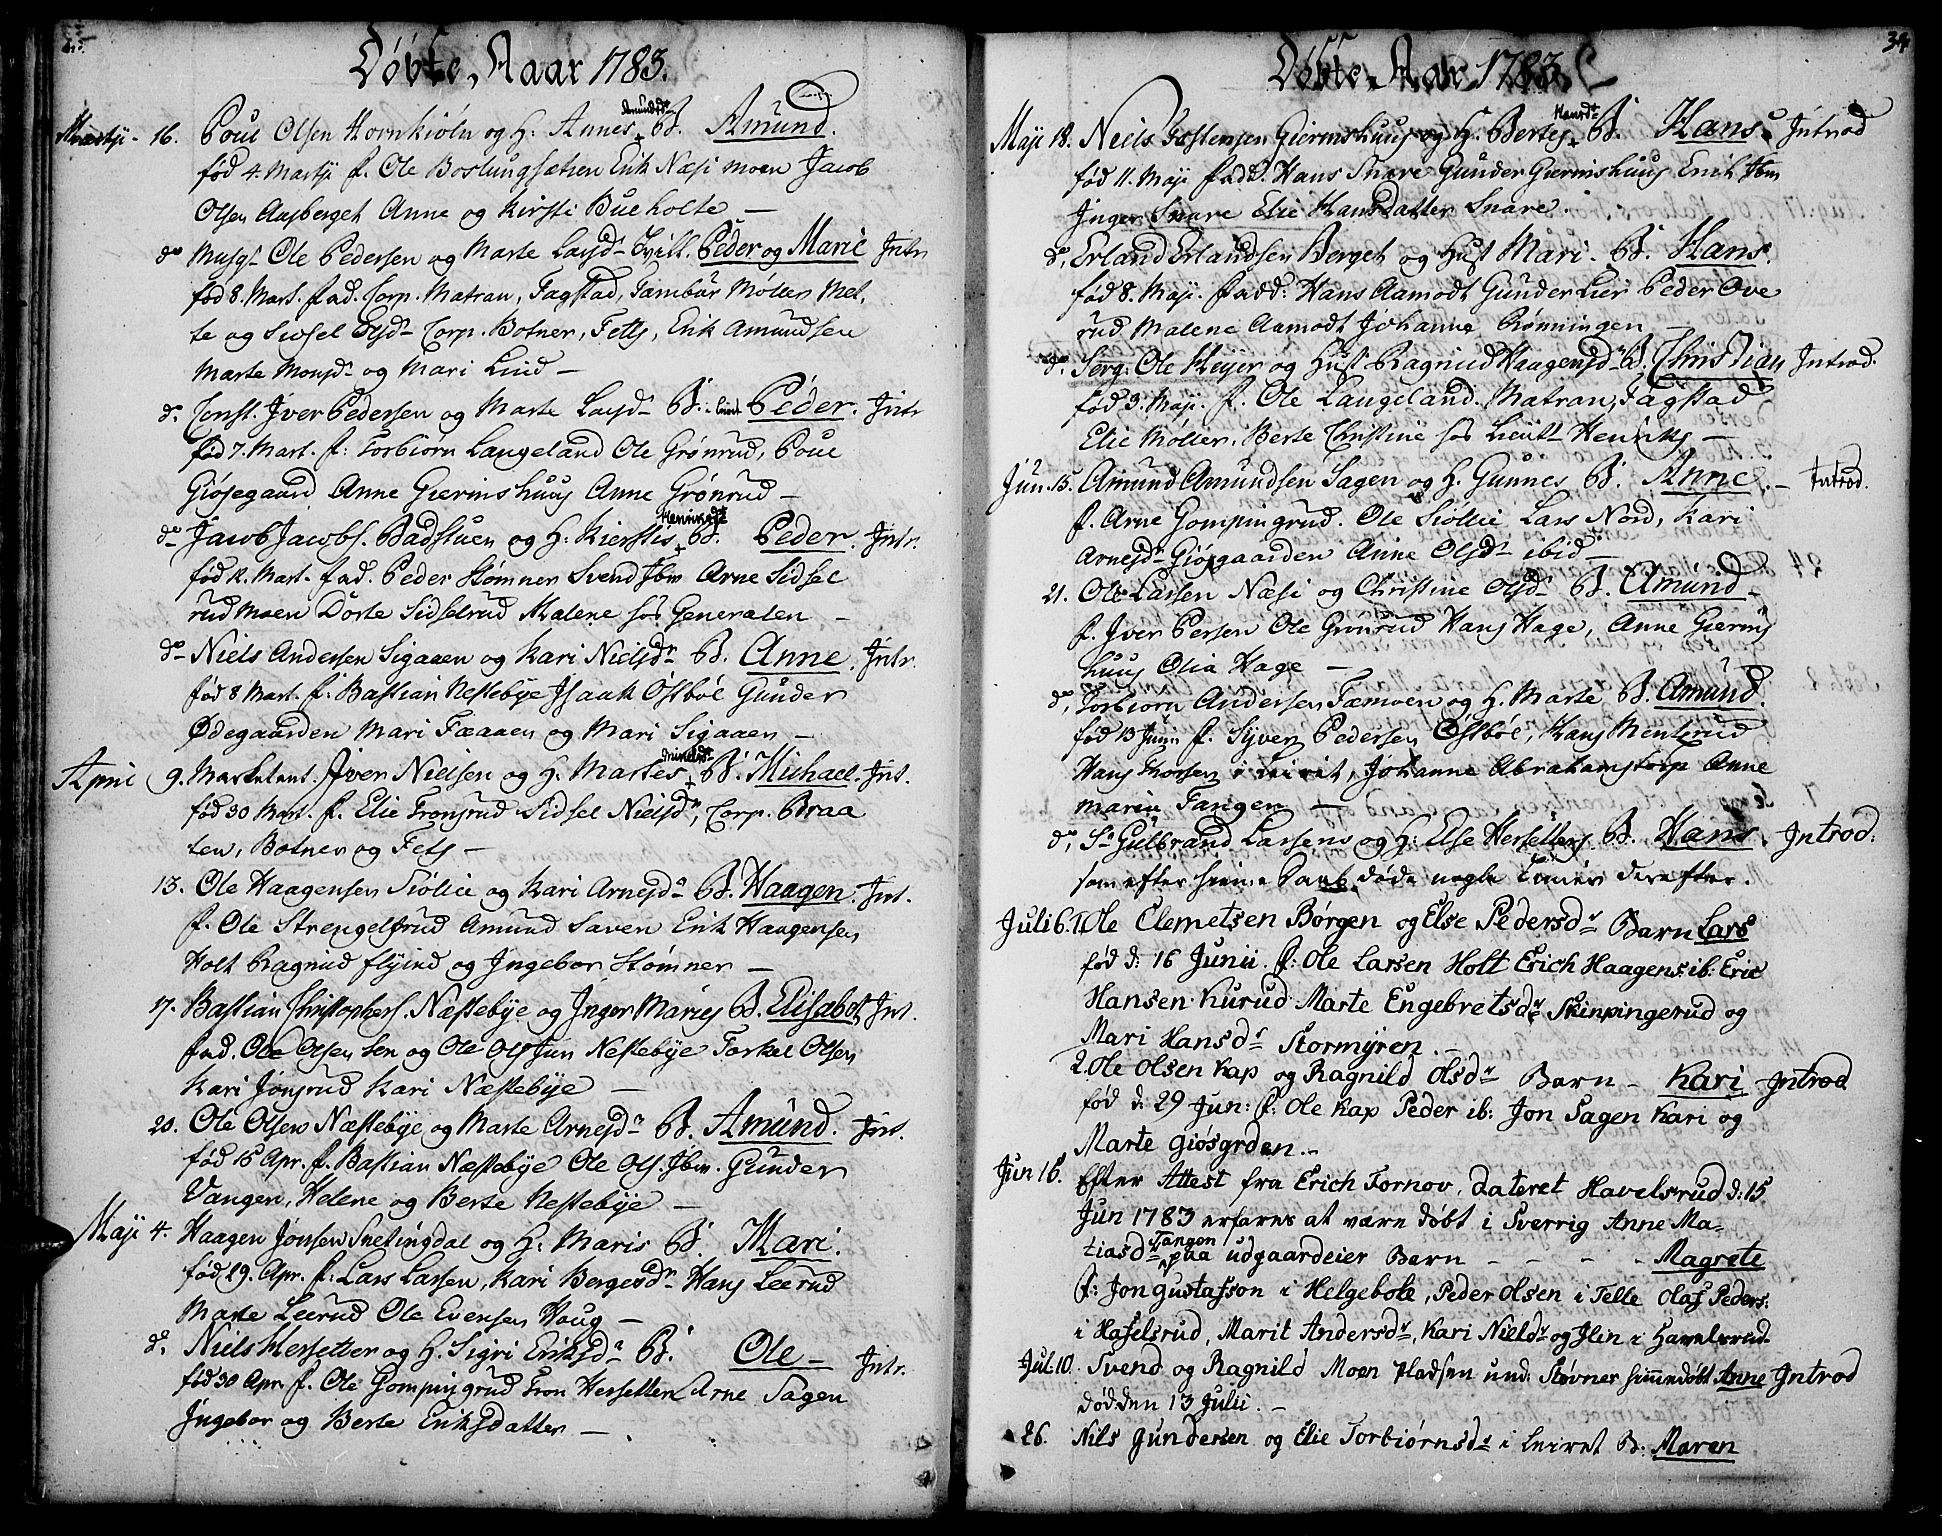 Døbte, Aar 1783.
Martji - 16. Poul Olsen Hornkioln og H: Annes Amundsdr B. Amund.
fød 4. Martji f. Ole Boslungsætren Erik Næsi moen Jacob
Olsen Aasberget Anne og Kirsti Bueholte —
do Musqt Ole Pedersen og Marte Larsdr Tvill. Peder og Marie Intr
fød 8. Mart. fad. Corp. Matran, Fagstad, Tambur Møller Met,
te og Sidsel Corp. Botner, Fetts, Erik Amundsen
Marte Monsdr og Mari Lind —
do Const. Iver Pedersen og Marte Larsdr B. i leiret Peder. Intr
fød 7. Mart. f: Torbiørn Langeland Ole Grønrud, Poul
Giøsegaard Anne Giermshuus Anne Grønrud —
do Jacob Jacobs. Badstuen og H. Kierstis Henningsdr B. Peder. Intr.
fød 12. Mart. fad. Peder Stømner Svend Ibm Arne Sidsel
rud moen Dorte Sidselrud Malene hos Generalen —
do Niels Andersen Sigaaen og Kari Nielsdr B. Anne. Intr.
fød 8 Mart. f: Bastian Nestebye Isaak Østbøl Gunder
Ødegaarden Mari Fæaaen og Mari Sigaaen —
April 9. Marketent. Iver Nielsen og H. Martes B. Michael. Int.
fød 30 Mart. f. Elie Tronsrud Sidsel Nielsdr, Corp. Braa
ten, Botner og Fets —
13. Ole Haagensen Siølie og Kari Arnesdr B. Haagen. Int.
f. Ole Strengelsrud Amund Saven Erik Haagensen
Holt Ragnild flyind og Ingebor Stømner —
17. Bastian Christophers. Næstebye og Inger Maries B. Elisabet Int.
fad. Ole Olsen Sen og Ole Ols Jun Nestebye Torkel Olsen
Kari Jonsrud Kari Næstebye —
20. Ole Olsen Næstebye og Marte Arnesdr B. Amund. Int.
fød 16 Apr. f. Bastian Næstebye Ole Ols. Ibm. Gunder
Vangen, Helene og Berte Nestebye —
Maji 4. Haagen Jonsen Snetingdal og H. Maris B. Mari.
fød 29. Apr. f: Lars Larsen, Kari Bergersdr Hans Leerud
Marte Leerud Ole Evensen Houg —
do Niels Hersetter og H. Sigri Eriksdr B. Ole — Intr.
fød 30 Apr. f. Ole Gompingrud Tron Hersetter Arne Sagen
Ingebor og Berte Eriksdatter —
34
Døbte Aar 1783
Maji 18. Niels Giermshuus og H. Bertes Hansdr B. Hans Introd
fød 11. Maji fadd. Hans Snare Gunder Giermshuus Erich Ibm
Inger Snare Elie Hansdatter Snare.
do, Erland Erlandsen Berget og Hust Mari. B. Hans.
fød 8. Maji. fadd: Hans Aamodt Gunder Lier Peder Ove
rud Malene Aamodt Johanne Rønningen —
do. Serg: Ole Meyer og Hust Ragnild Haagensdr B. Christian Introd.
fød 3. Maji. f. Ole Langeland. Matran, Fagstad
Elie Møller, Berte Christine hos Lieutt Henriks —
Jun. 15. Amund Amundsen Sagen og H. Gunnes B. Anne. — Introd.
f. Arne Gompingrud. Ole Siøllie Lars Nord, Kari
Arnesdr Giøsgaarden Anne Olsdr ibid —
21. Ole Larsen Næsi og Christine Olsdr B. Amund —
f. Iver Persen Ole Grønrud Hans Hage, Anne Gierms
huus Olia Hage —
do, Torbiørn Andersen Fæmoen og H. Marte B. Amund.
fød 13 Junii f. Syver Pedersen Østbøl, Hans Mentzrud
Hans Thorsen i leirit, Johanne Abrahamstorp Anne
maria Fangen —
do, Sr Gulbrand Larsens og H: Else Hersetters B. Hans. Introd.
som efter hiemme Daab døde nogle Timer derefter.
Juli 6. 1. Ole Clemetsen Børgen og Else Pedersdr Barn Lars
fød d: 16 Junii. f: Ole Larsen Holt Erich Haagens: ib: Eric
Hansen Kurud Marte Engebretsdr Skinpingerud og
Mari Hansdr Stormyren. —
2. Ole Olsen Kap og Ragnild Olsdr Barn — Kari Introd
fød d: 29 Jun: f: Ole Kap Peder ib: Jon Sagen Kari og
Marte Giøsgrden. —
Jun 16. Efter Attest fra Erich Tornov, dateret Havelsrud d: 15
Jun 1783 erfares at være døbt i Sverrig Anne Ma-
tiasdr Tangen paa udgaardeier Barn — — — Magrete
f: Jon Gustafson i Helgebole, Peder Olsen i Telle Olaf Peders:
i Hafelsrud, Marit Andersdr, Kari Nieldr og Ilin i Havelsrud.
Jul. 10. Svend og Ragnild Moen Pladsen und: Støvner hiemmedøbt Anne Introd
død den 13 Julii. —
26. Nils Gundersen og Elie Torbiørnsdr i leiret B. Maren